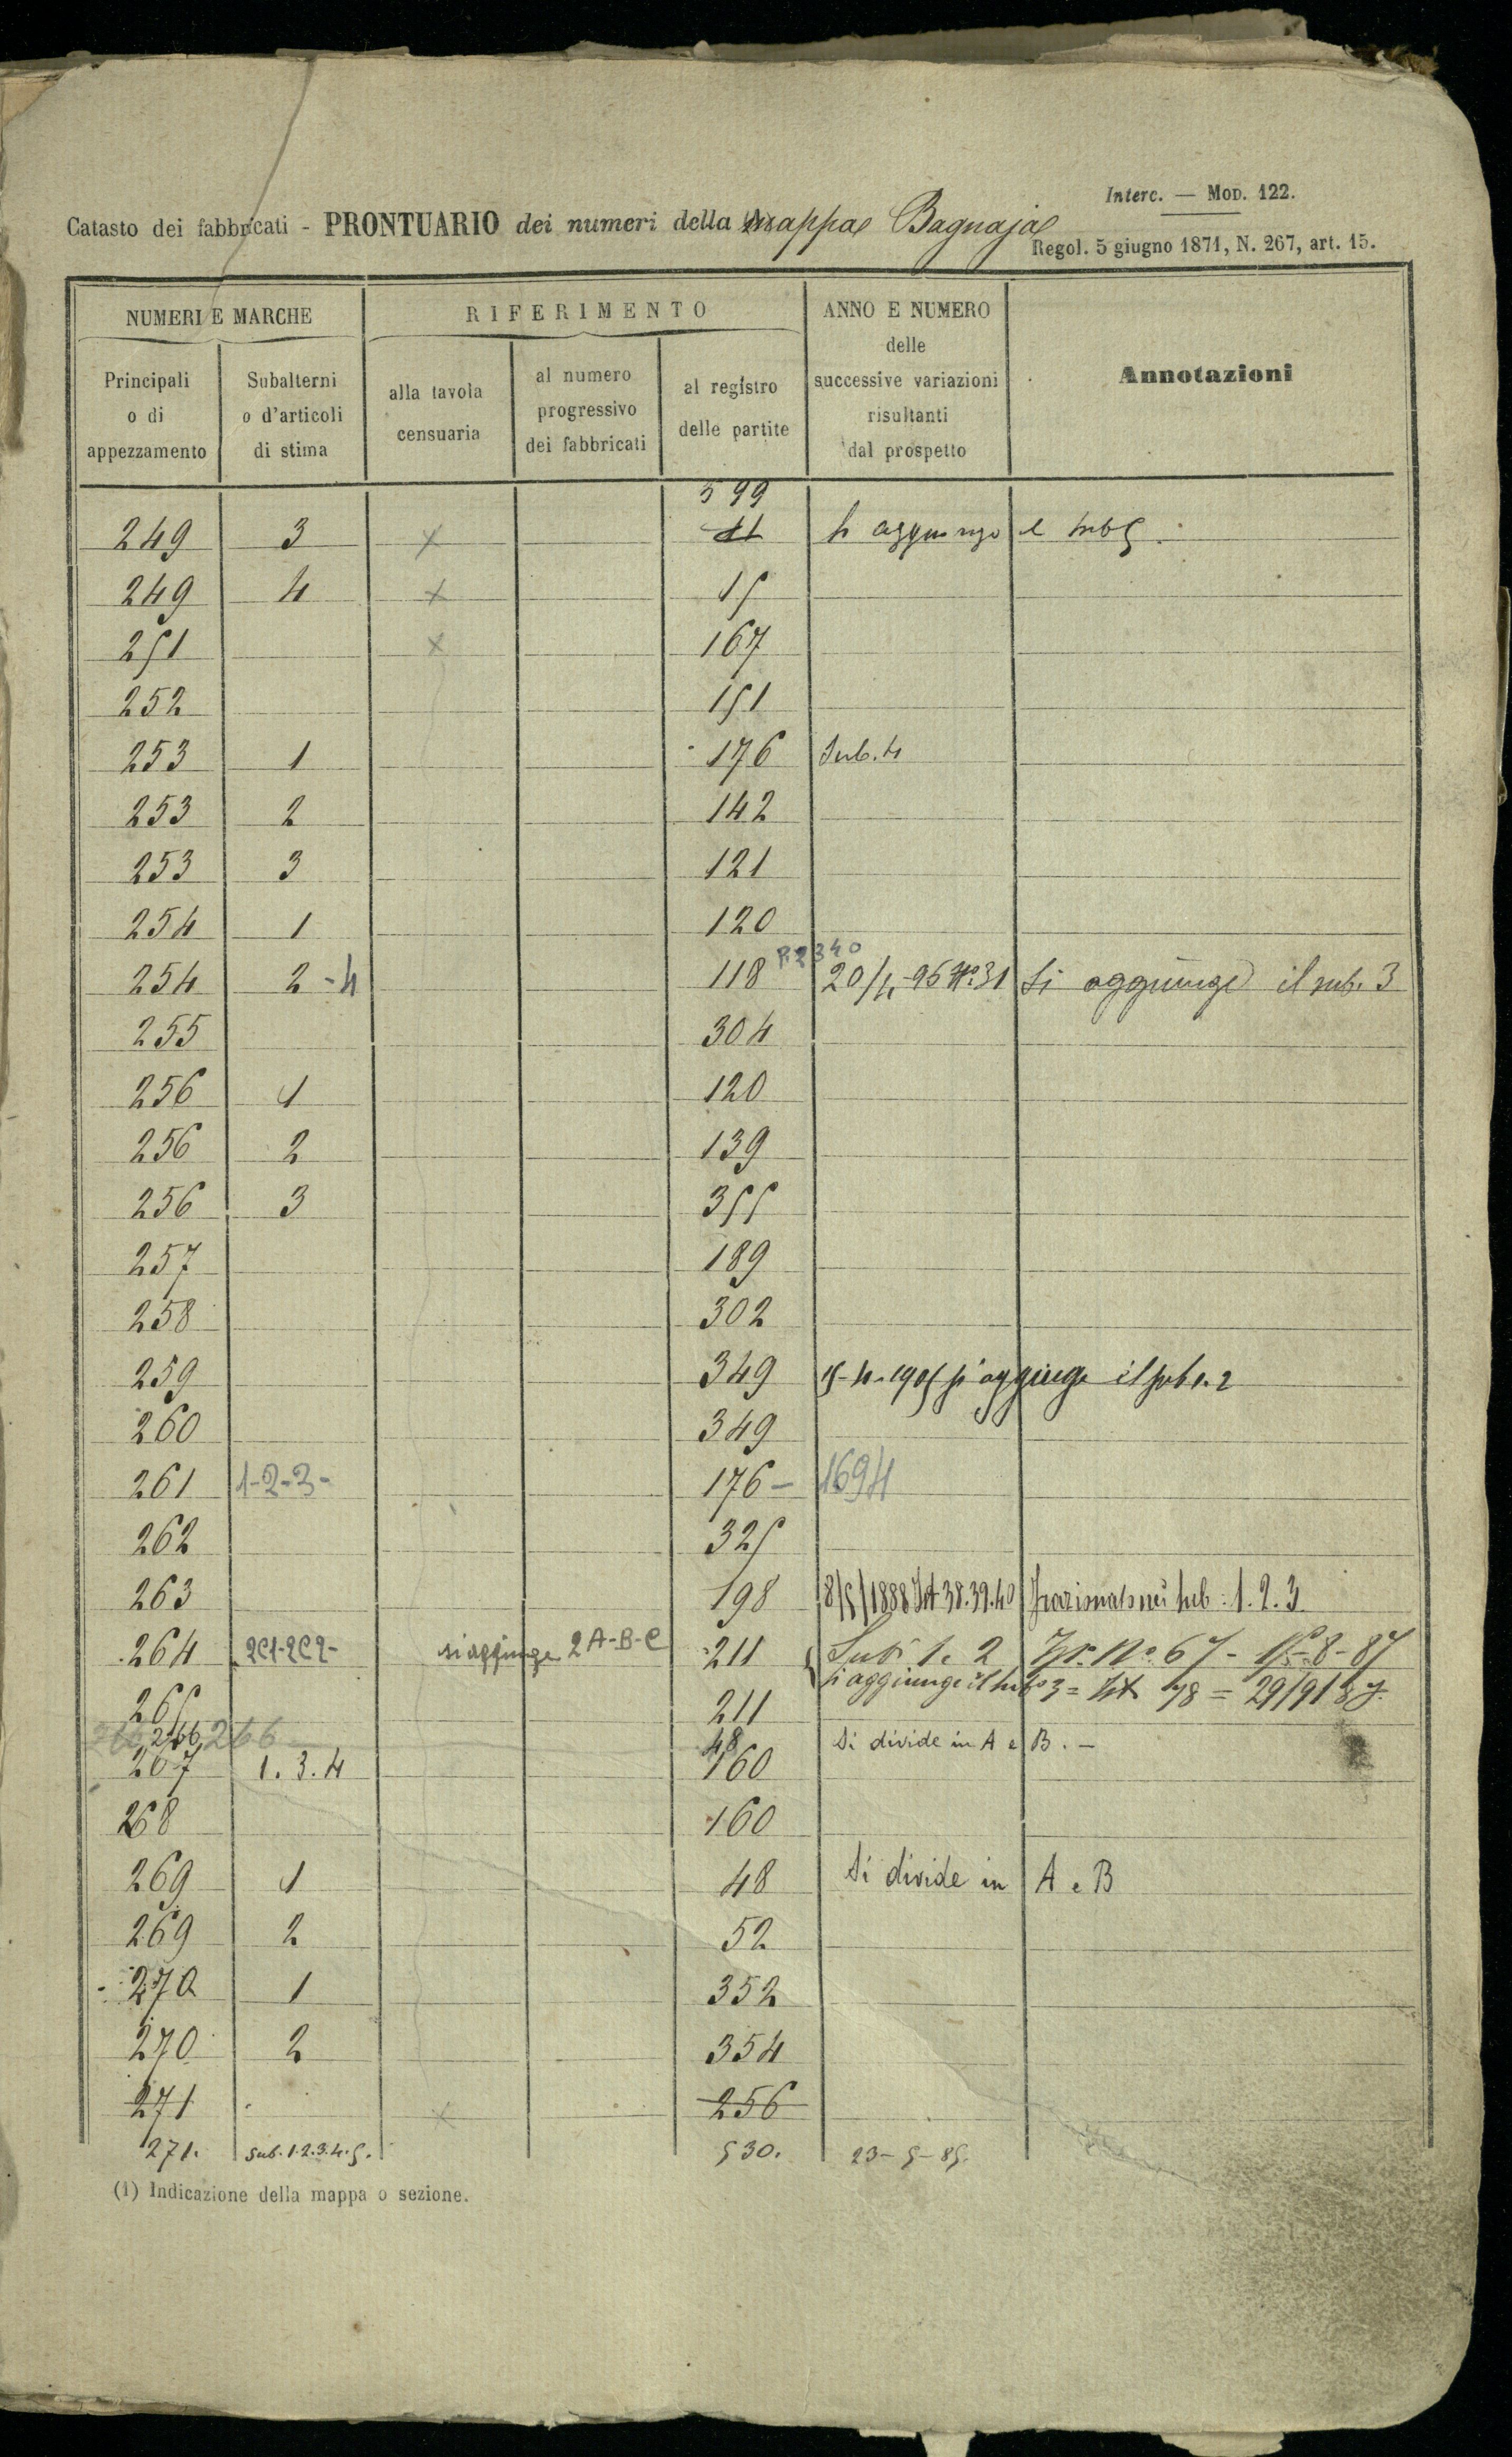 Interc. — Mod. 122.
Catasto dei fabbricati - PRONTUARIO dei numeri della mappa Bagnaja
Regol. 5 giugno 1871, N. 267, art. 15.
NUMERI E MARCHE RIFERIMENTO ANNO E NUMERO delle successive variazioni risultanti dal prospetto Annotazioni
Principali o di appezzamento Subalterni o d'articoli di stima alla tavola censuaria al numero progressivo dei fabbricati al registro delle partite
599
249 3 x 11 si aggiunge il sub 5.
249 4 x 15
251 x 167
252 151
253 1 176 Sub. 4
253 2 142
253 3 121
254 1 120
2340
254 2 - 4 118 20/4-95 N° 31 Si aggiunge il sub. 3
255 304
256 1 120
256 2 139
256 3 355
257 189
258 302
259 349 15-4-1905 si aggiunge il sub. 2
260 349
261 1-2-3- 176 - 1694
262 325
263 198 8/5/1888 38.39.40 Frazionato nei sub: 1. 2. 3
264 2C1-2C2- si aggiunge 2A-B-C 211 Sub 1. 2 N° 67 - -8-87
si aggiunge il sub 3 = 78 = 29/9/87.
265 211
266 266 48 Si divide in A e B. -
267 1. 3. 4 160
268 160
269 1 48 Si divide in A e B
269 2 52
270 1 352
270 2 354
271 x 256
271. Sub. 1.2.3.4.5. 530. 23-5-85.
(1) Indicazione della mappa o sezione.